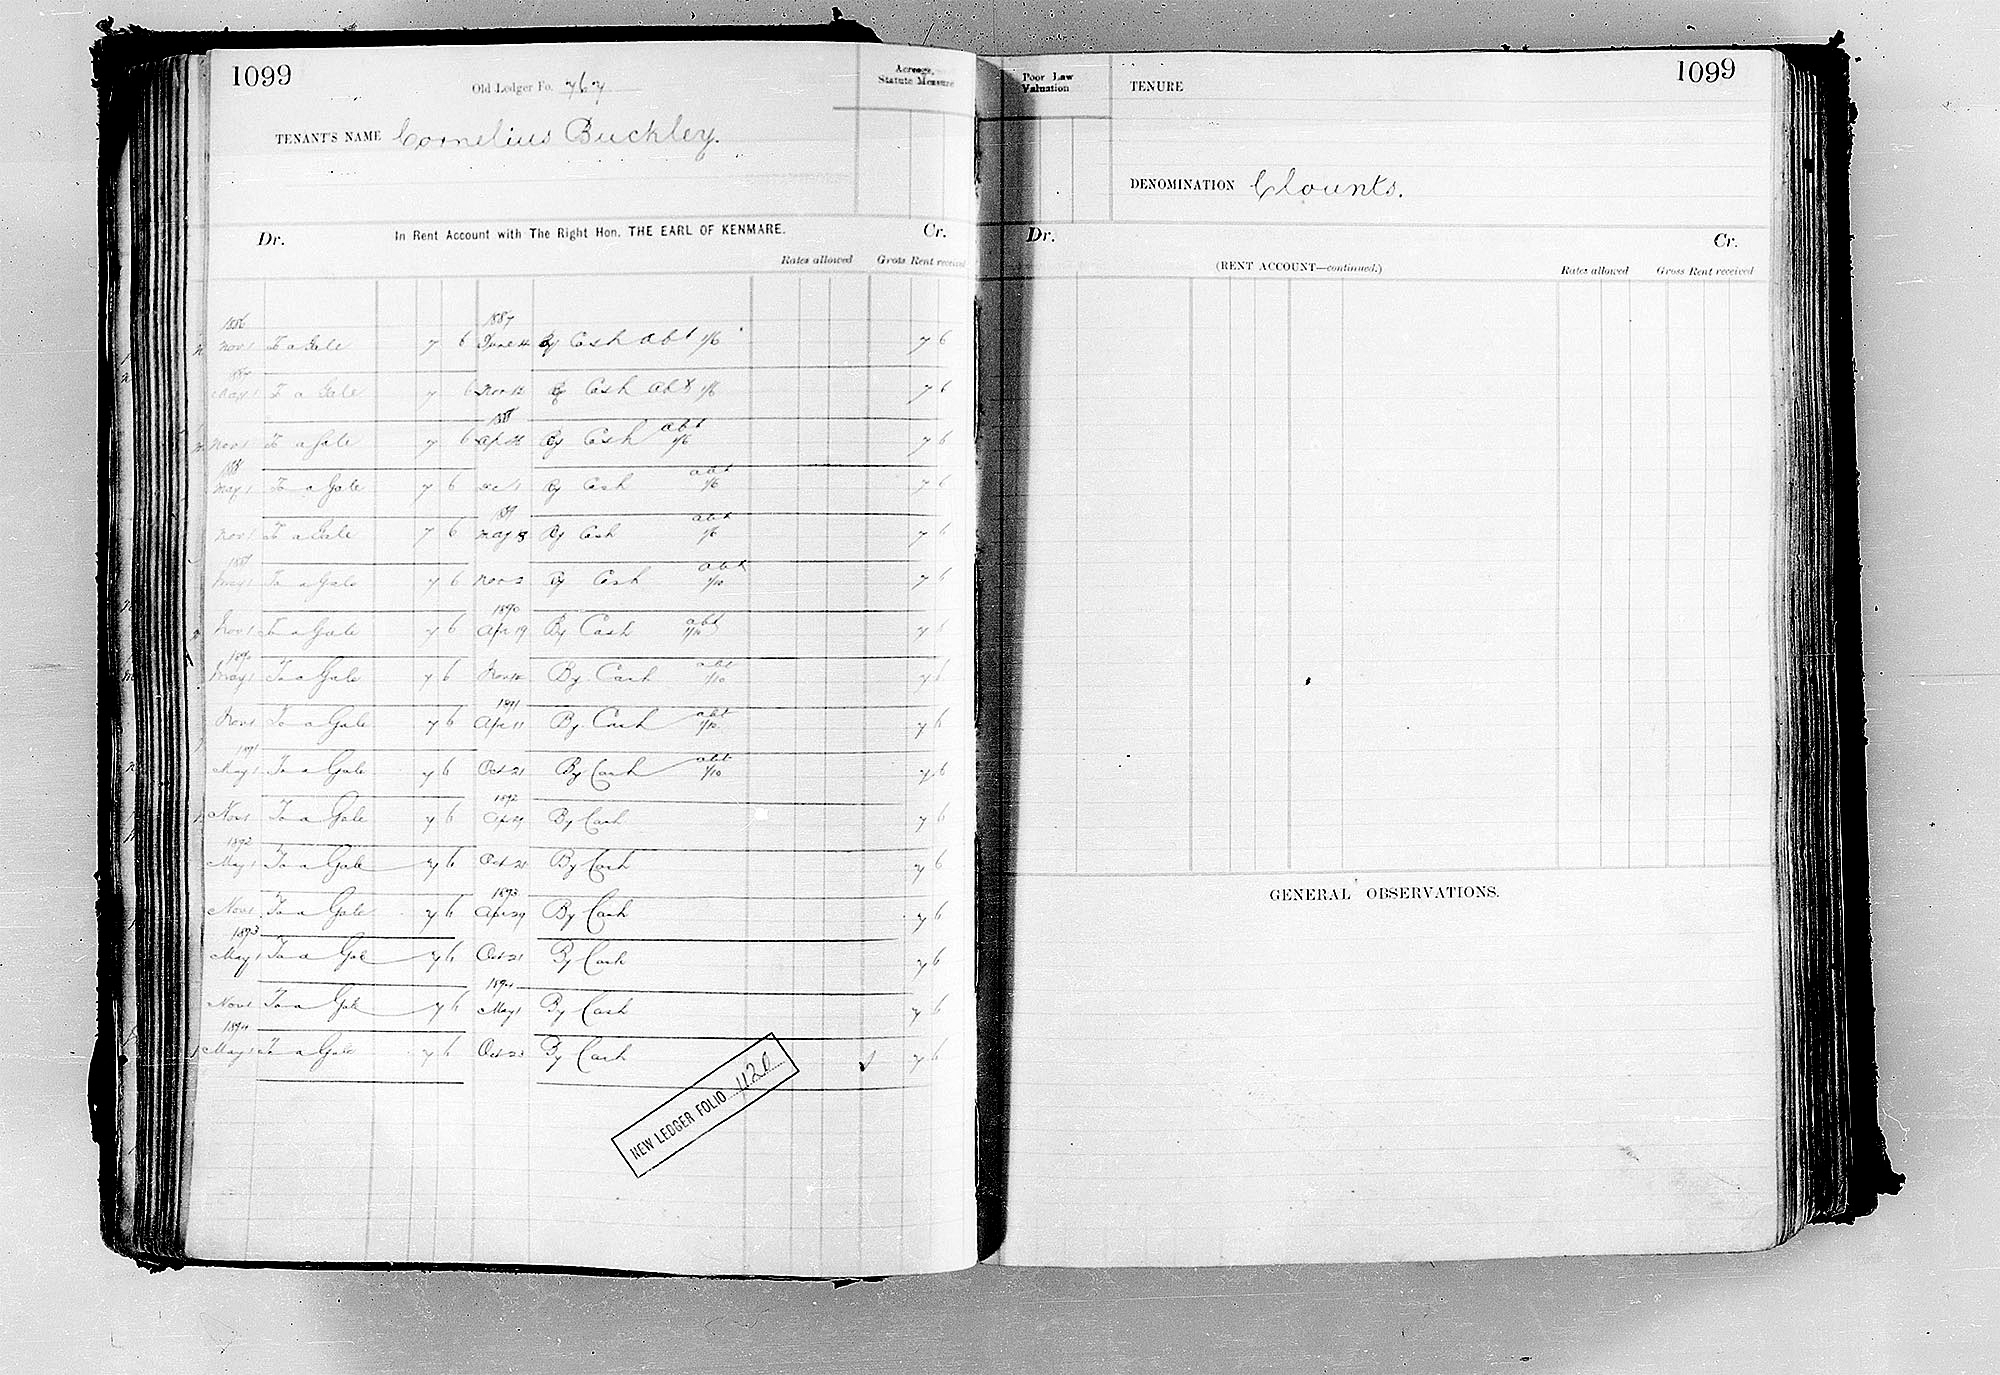 1099
Old Ledger Fo. 767
Acreage, Statute Measure
TENANT'S NAME Cornelius Buckley.
Dr. In Rent Account with The Right Hon. THE EARL OF KENMARE. Cr.
Rates allowed Gross Rent received
1886 1887
Nov 1 To a Gale 7 6 June By Cash abt 1/6 7 6
1887
May 1 To a Gale 7 6 Nov By Cash abt 1/6 7 6
1888
Nov 1 To a Gale 7 6 Ap By Cash abt 1/6 7 6
1888
May 1 To a Gale 7 6 Dec 1 By Cash abt 1/6 7 6
1889
Nov 1 To a Gale 7 6 May By Cash abt 1/6 7 6
1889
May 1 To a Gale 7 6 Nov 2 By Cash abt 1/10 7 6
1890
Nov 1 To a Gale 7 6 Apr 19 By Cash abt 1/10 7 6
1890
May 1 To a Gale 7 6 Nov By Cash abt 1/10 7 6
1891
Nov 1 To a Gale 7 6 Apr 11 By Cash abt 1/10 7 6
1891
May 1 To a Gale 7 6 Oct 21 By Cash abt 1/10 7 6
1892
Nov 1 To a Gale 7 6 Apr 29 By Cash 7 6
1892
May 1 To a Gale 7 6 Oct 21 By Cash 7 6
1893
Nov 1 To a Gale 7 6 Apr 29 By Cash 7 6
1893
May 1 To a Gale 7 6 Oct 21 By Cash 7 6
1894
Nov 1 To a Gale 7 6 May 1 By Cash 7 6
1894
May 1 To a Gale 7 6 Oct 23 By Cash 7 6
NEW LEDGER FOLIO
1099
Poor Law Valuation
TENURE
DENOMINATION Clounts.
Dr. Cr.
(RENT ACCOUNT—continued.) Rates allowed Gross Rent received
GENERAL OBSERVATIONS.